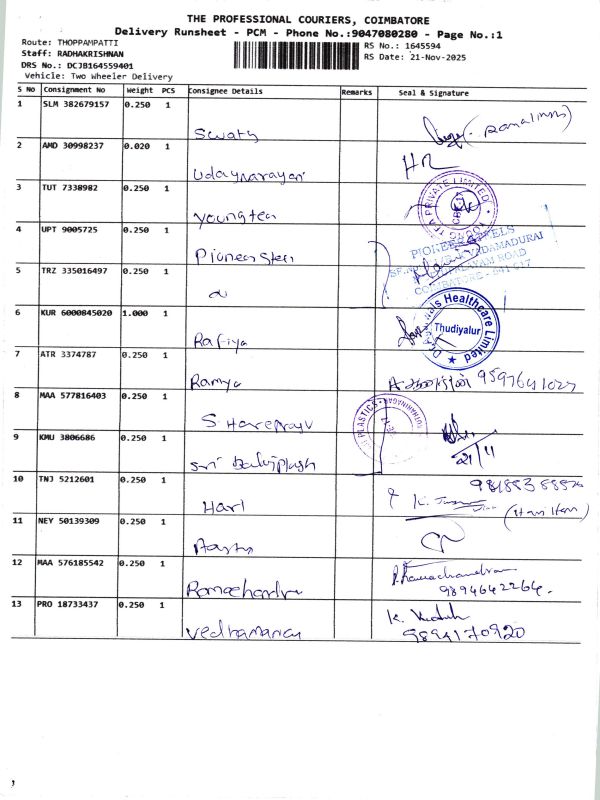 THE PROFESSIONAL COURIERS, COIMBATORE
Delivery Runsheet - PCM - Phone No.:9047080280 - Page No.:1
Route: THOPPAMPATTI
RS No.: 1645594
Staff: RADHAKRISHNAN
RS Date: 21-Nov-2025
DRS No.: DCJB164559401
Vehicle: Two Wheeler Delivery
S No Consignment No Weight PCS Consignee Details Remarks Seal & Signature
1 SLM 382679157 0.250 1
Swathy
2 AMD 30998237 0.020 1
HR
Udaynarayan
3 TUT 7338982 0.250 1
TEA PRIVATE LIMITED
Youngtea
4 UPT 9005725 0.250 1
Pioneer steel
PIONEER
VADAMADURAI
ROAD
COIMBATORE
5 TRZ 335016497 0.250 1
6 KUR 6000845020 1.000 1
Healthcare Limited
Thudiyalur
Rafiya
7 ATR 3374787 0.250 1
Ramya
9597641027
8 MAA 577816403 0.250 1
PLASTICS
S. Hareprayu
9 KMU 3806686 0.250 1
21/11
Sri Balajiplash
10 TNJ 5212601 0.250 1
Hari
11 NEY 50139309 0.250 1
12 MAA 576185542 0.250 1
P. Ramachandran
Ramachandra
9894642264.
13 PRO 18733437 0.250 1
9894170920